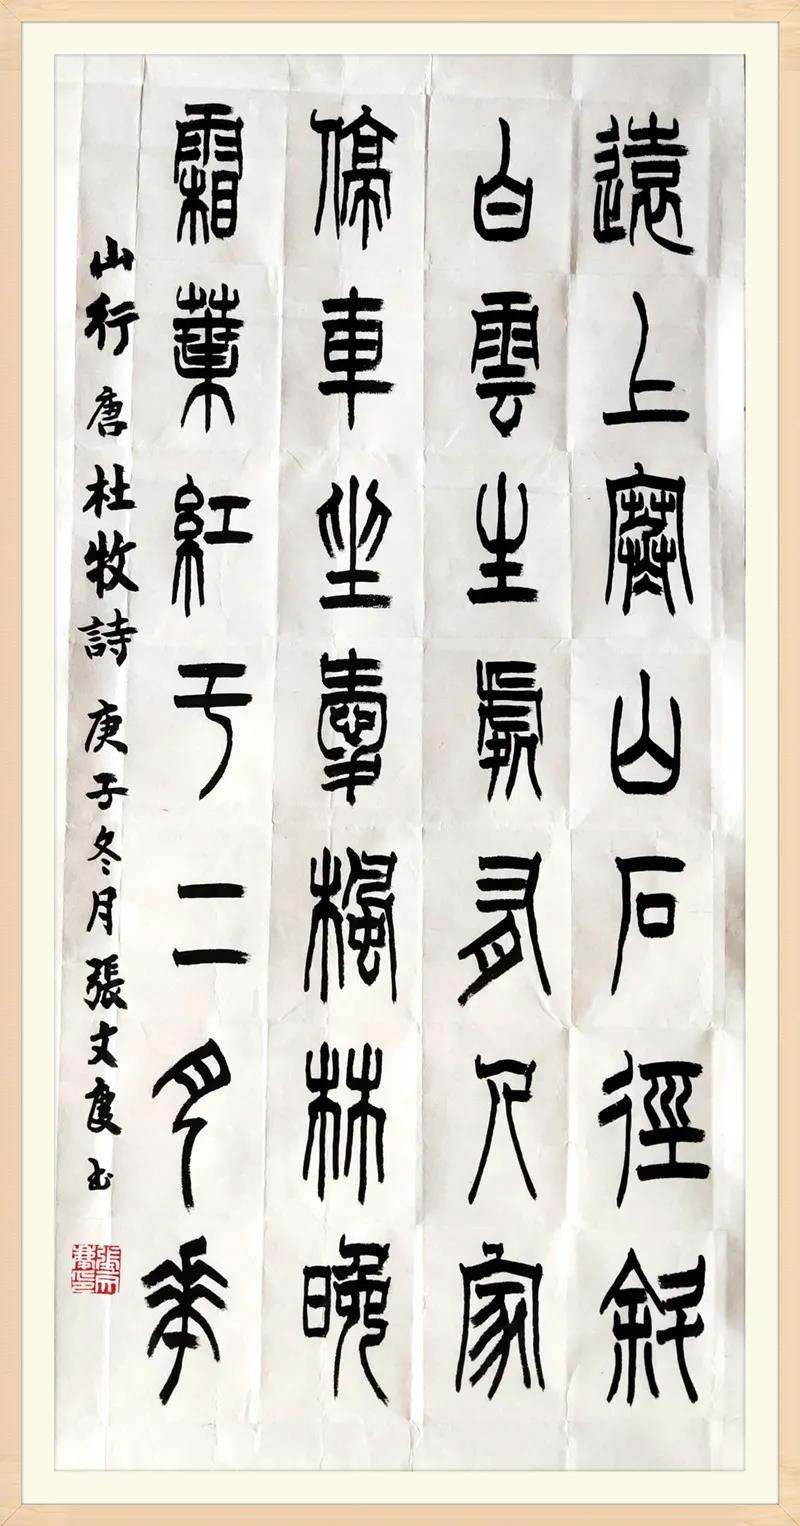 遠上寒山石徑斜
白雲生處有人家
停車坐愛楓林晚
霜葉紅于二月華
山行 唐 杜牧詩 庚子冬月 張文慶书